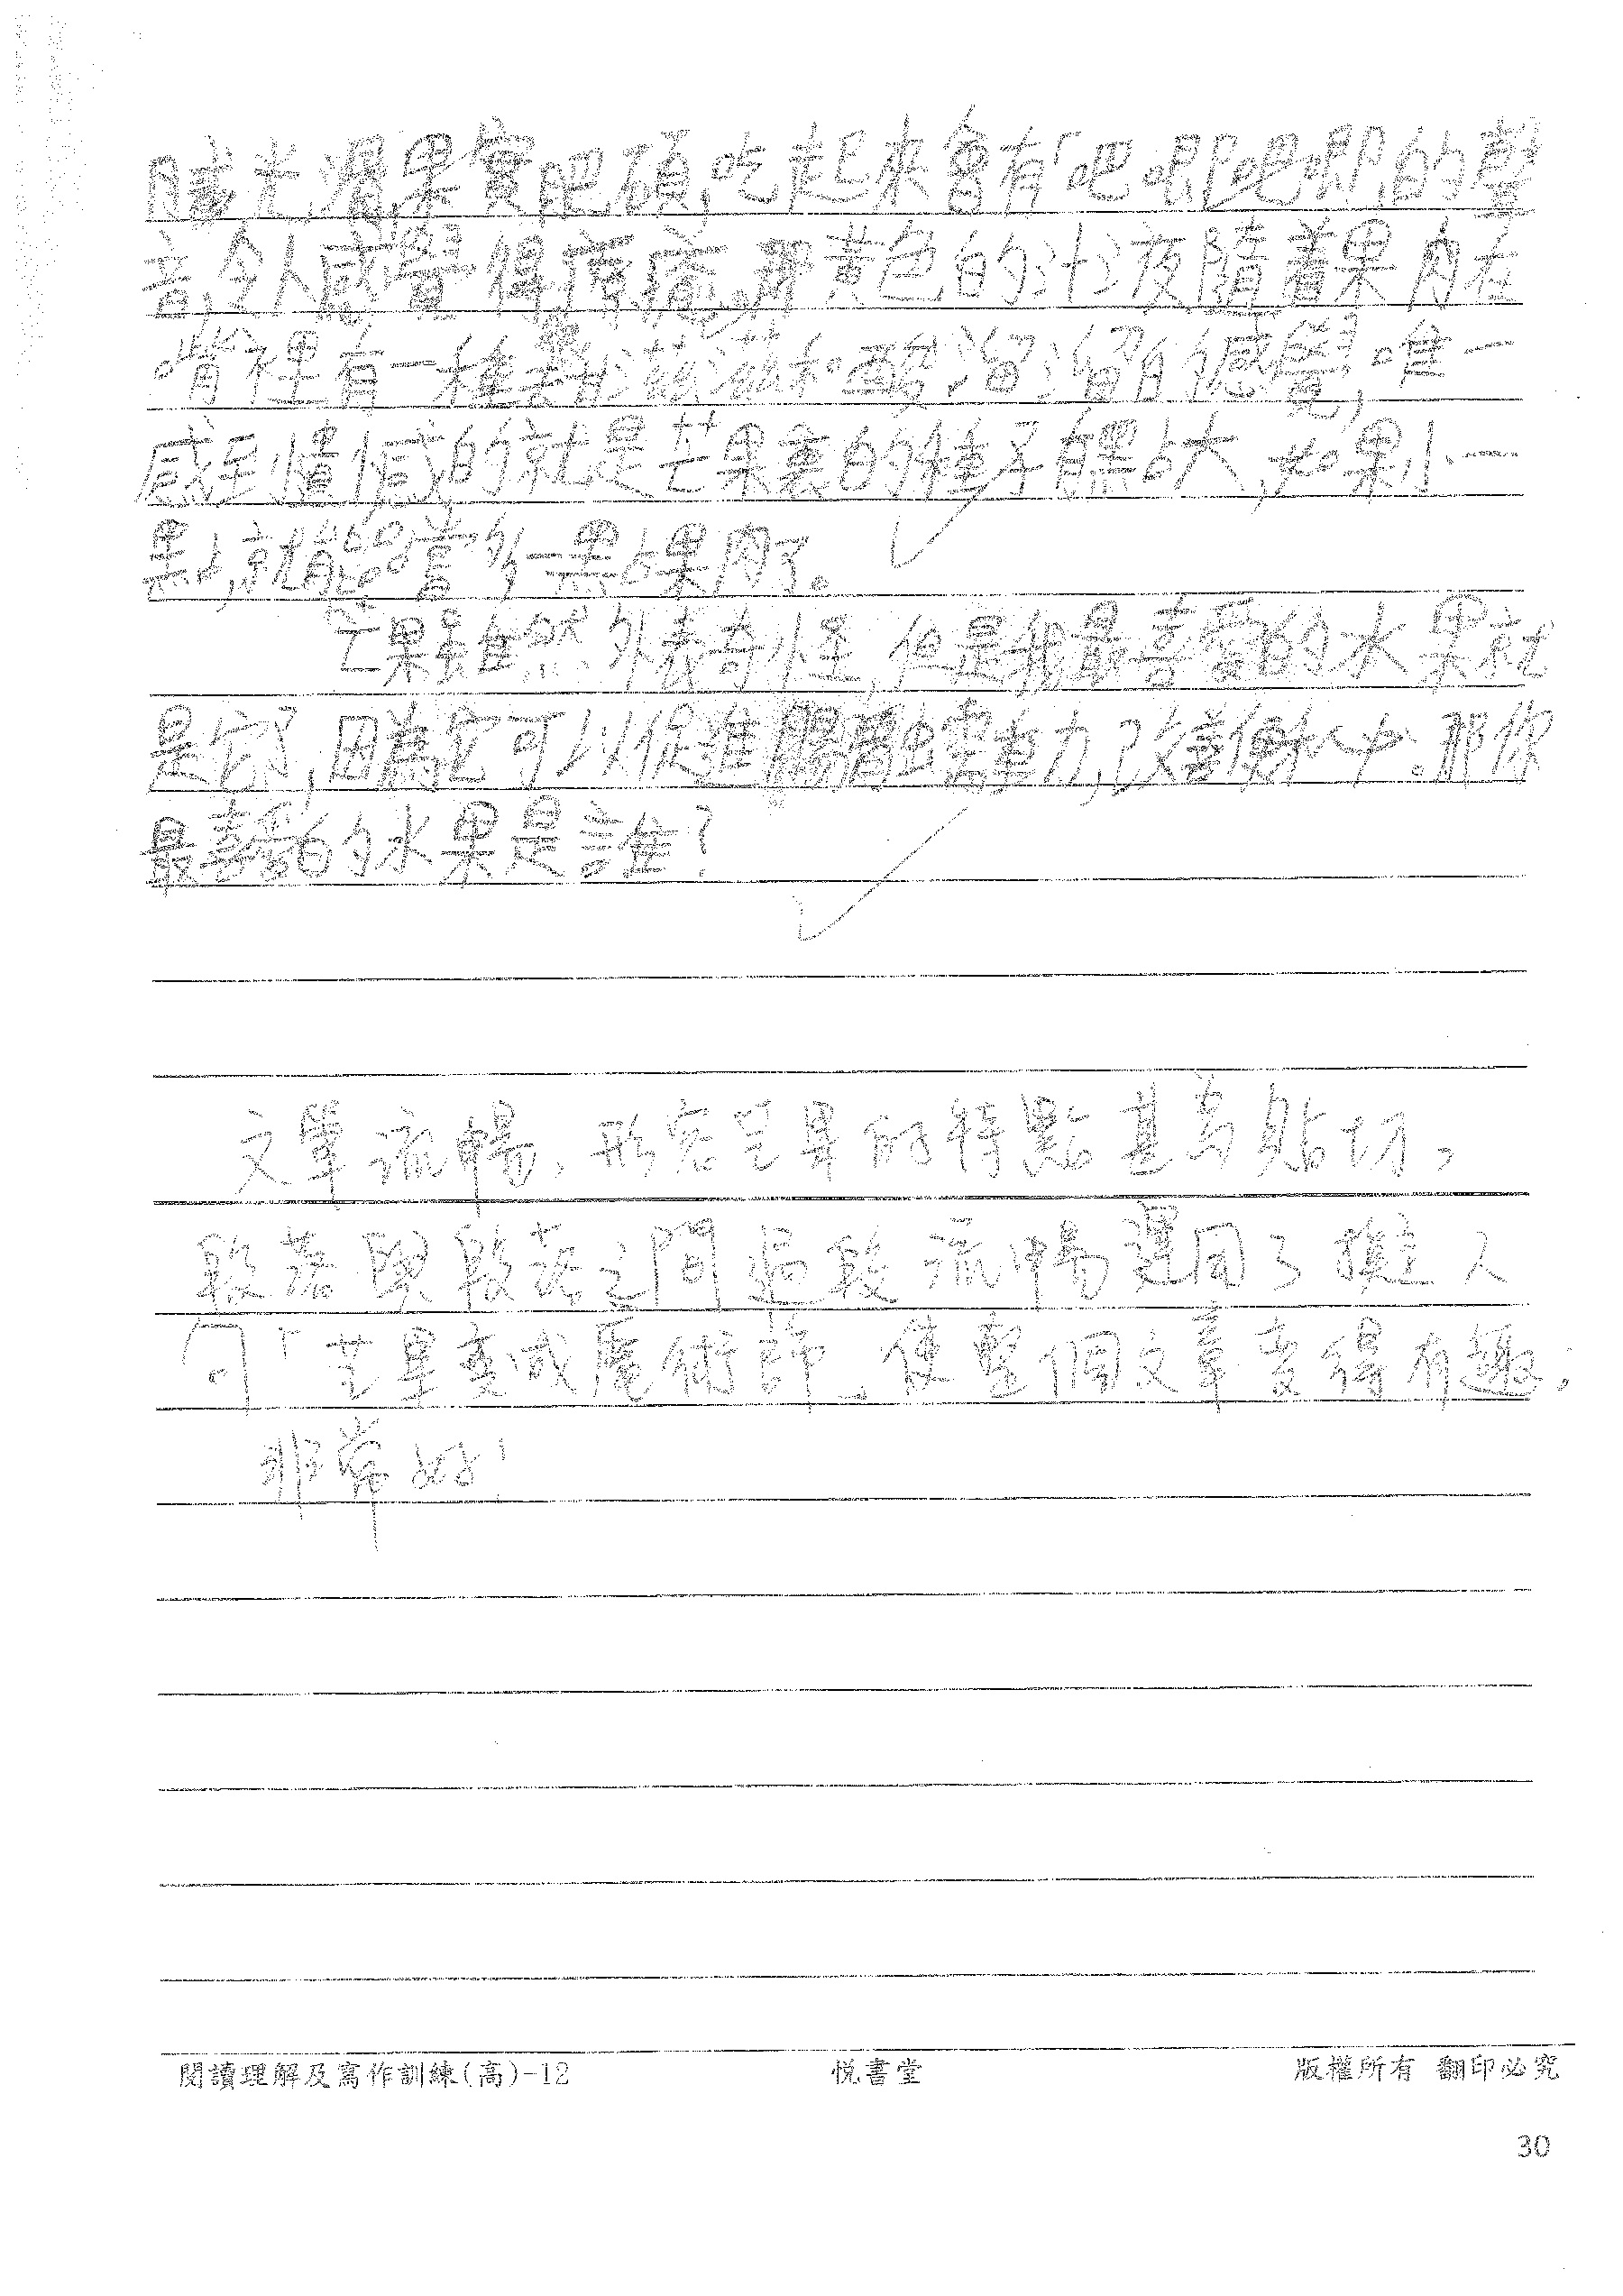 吃起來會有「吧唧吧唧」的聲
音,令人感覺得 黃色的汁液隨着果肉在
嘴裡有一種 和 的感覺,唯一
感到 的就是芒果裏的種子有點大,如果小一
點, 就可以 多一點果肉了。
芒果雖然外表奇怪,但是我最喜愛的水果就
是它了,因為它可以促進腸胃的 動力, 那你
最喜愛的水果是誰?
文筆流暢,形容芒果的特點甚為貼切,
段落與段落之間 流暢運用了擬人
句「芒果變成魔術師」使整個文章變得有趣,
非常好!
閱讀理解及寫作訓練(高)-12 悅書堂 版權所有 翻印必究
30